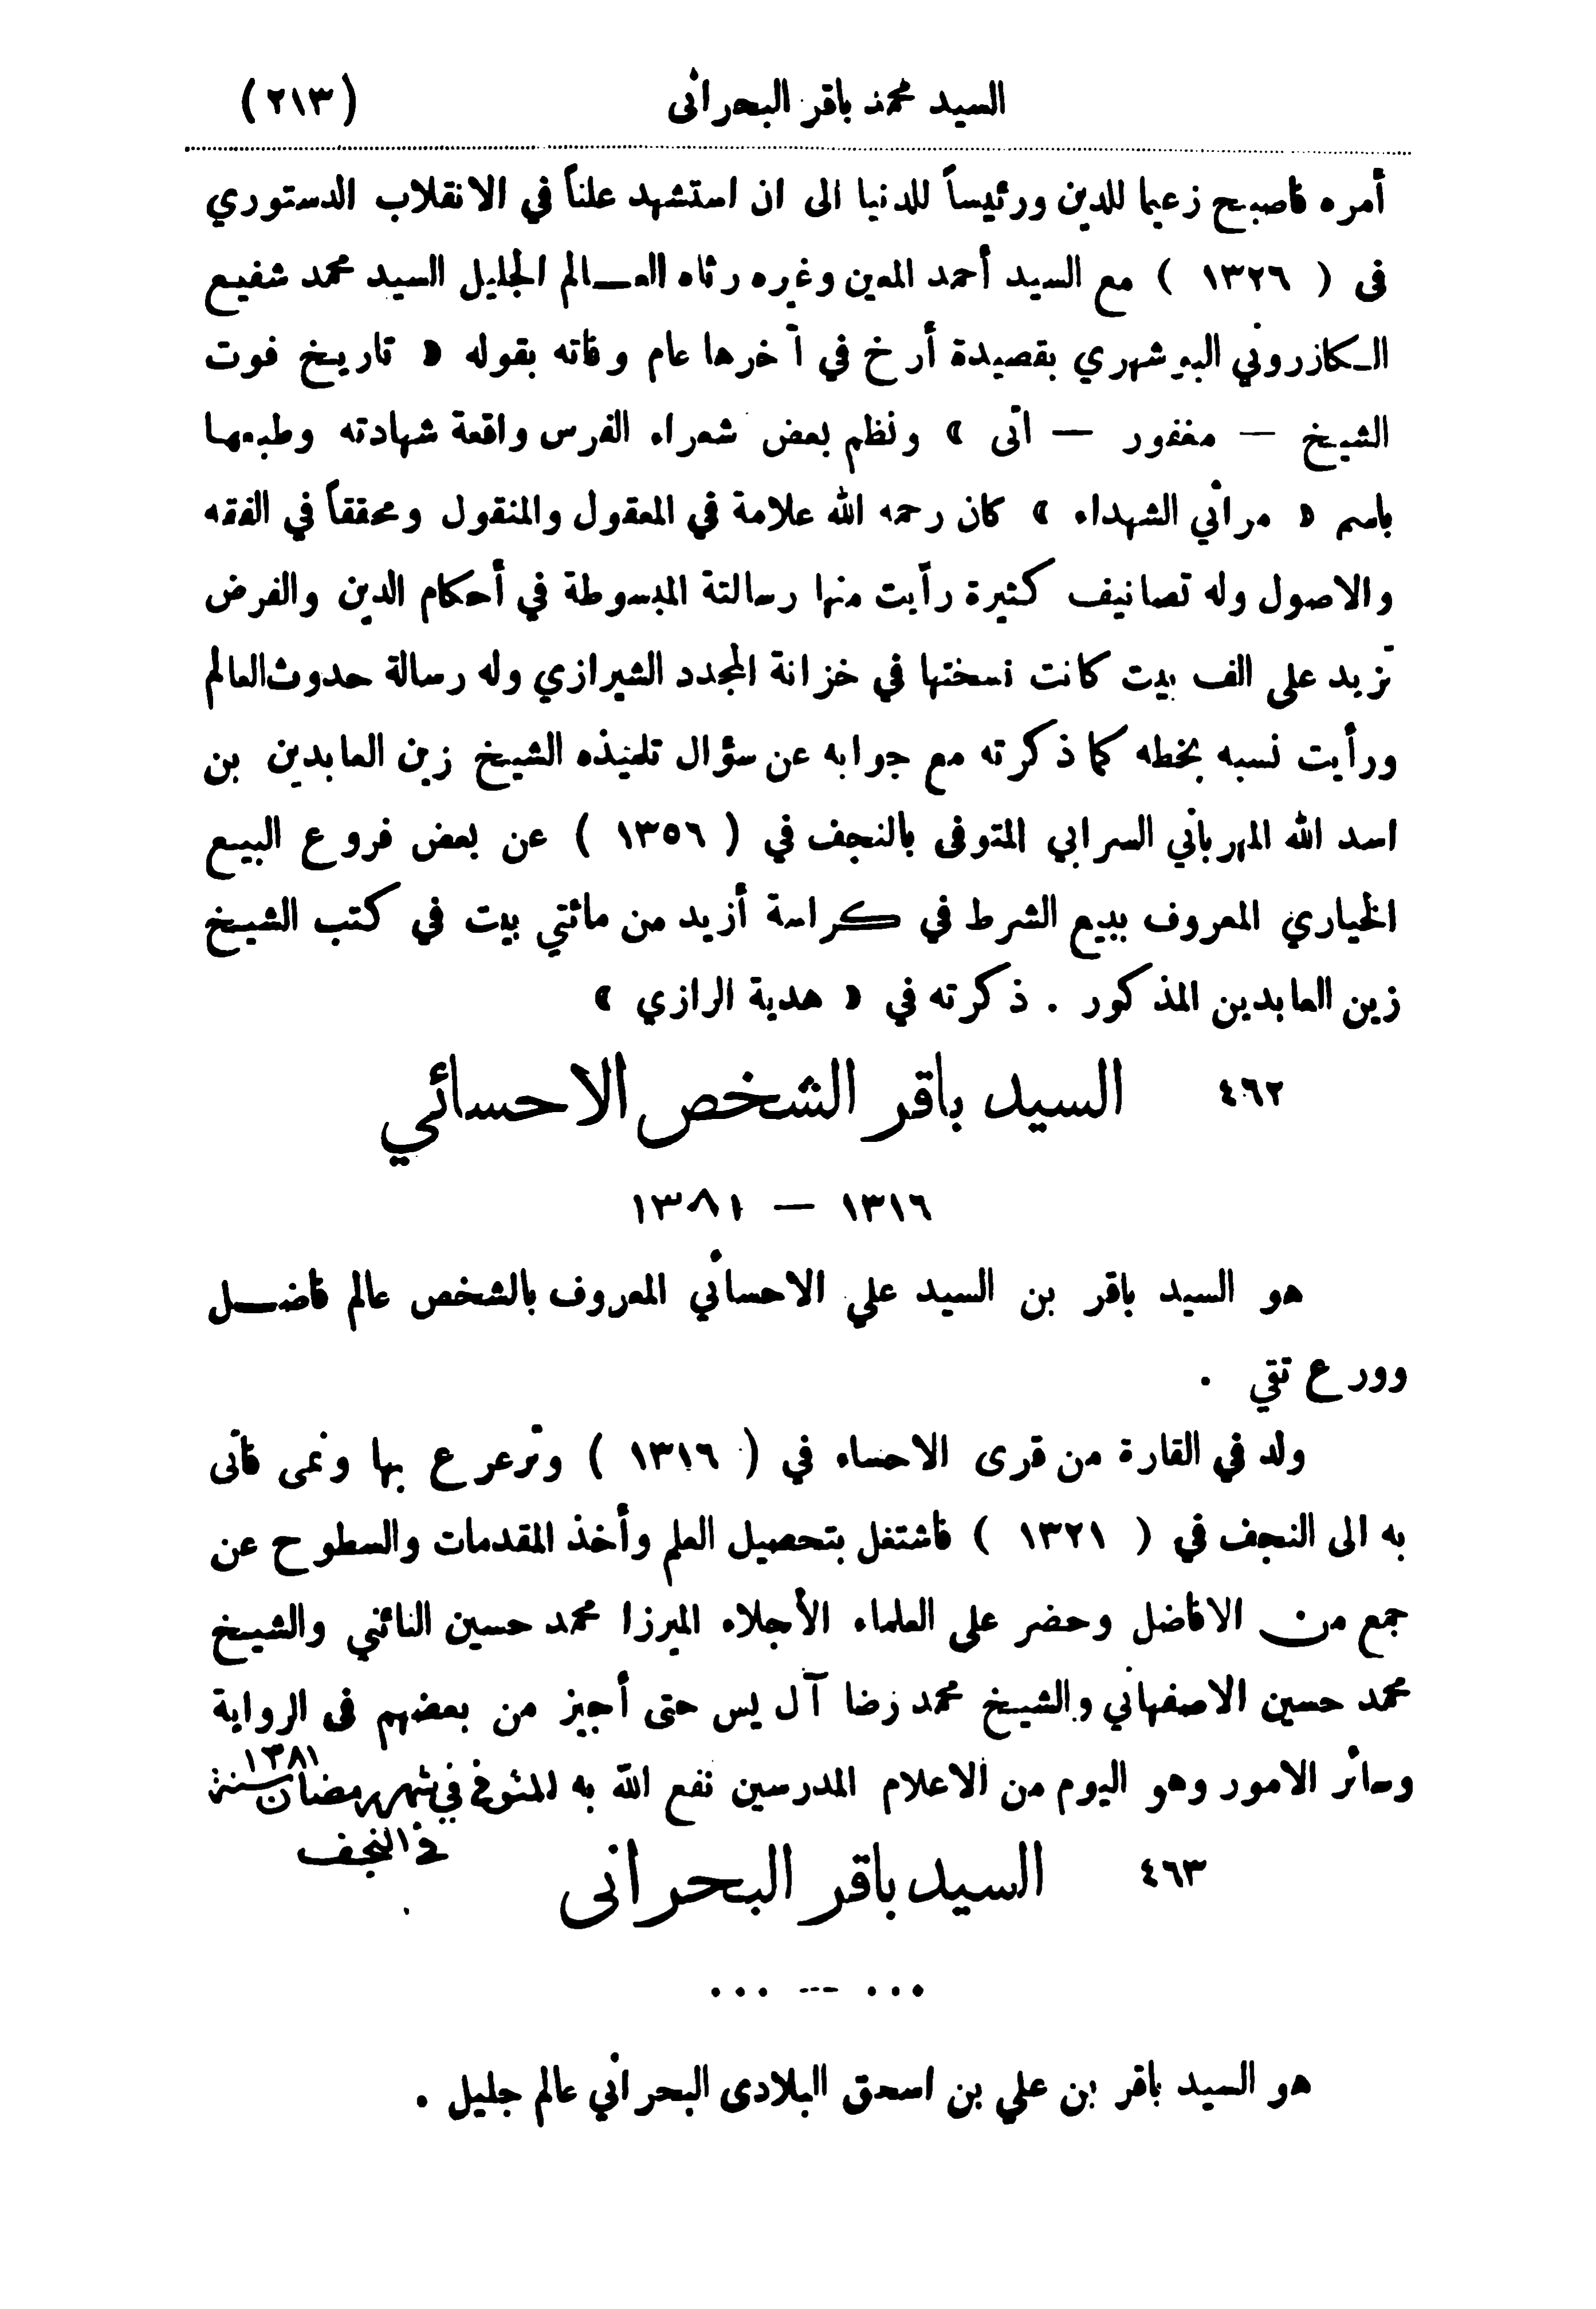 السيد محمد باقر البحرانى (٢١٣)
أمره فاصبح زعيما للدين ورئيساً للدنيا الى ان استشهد علناً في الانقلاب الدستوري
فى ( ١٣٢٦ ) مع السيد أحمد المعين وغيره رثاه العـالم الجليل السيد محمد شفيع
الـكازروني البوشهري بقصيدة أرخ في آخرها عام وفاته بقوله « تاريخ فوت
الشيخ — مغفور — اتى » ونظم بعض شعراء الفرس واقعة شهادته وطبعها
باسم « مراثي الشهداء » كان رحمه الله علامة في المعقول والمنقول ومحققاً في الفقه
والاصول وله تصانيف كثيرة رأيت منها رسالتة المبسوطة في أحكام الدين والفرض
تزيد على الف بيت كانت نسختها في خزانة المجدد الشيرازي وله رسالة حدوث العالم
ورأيت نسبه بخطه كما ذكرته مع جوابه عن سؤال تلميذه الشيخ زين العابدين بن
اسد الله المهرباني السرابي المتوفى بالنجف في ( ١٣٥٦ ) عن بعض فروع البيع
الخياري المعروف ببيع الشرط في كراسة أزيد من مائتي بيت في كتب الشيخ
زين العابدين المذكور . ذكرته في « هدية الرازي »
٤٦٢ السيد باقر الشخص الاحسائي
١٣١٦ — ١٣٨١
هو السيد باقر بن السيد علي الاحسائي المعروف بالشخص عالم فاضـل
وورع تقي .
ولد في القارة من قرى الاحساء في ( ١٣١٦ ) وترعرع بها ونمى فاتى
به الى النجف في ( ١٣٢١ ) فاشتغل بتحصيل العلم وأخذ المقدمات والسطوح عن
جمع من الافاضل وحضر على العلماء الأجلاء الميرزا محمد حسين النائني والشيخ
محمد حسين الاصفهاني والشيخ محمد رضا آل يس حتى أجيز من بعضهم فى الرواية
وسائر الامور وهو اليوم من الاعلام المدرسين نفع الله به المتوفى في شهر رمضان سنة ١٣٨١
في النجف
٤٦٣ السيد باقر البحرانى
... --- ...
هو السيد باقر بن علي بن اسحق البلادى البحراني عالم جليل .